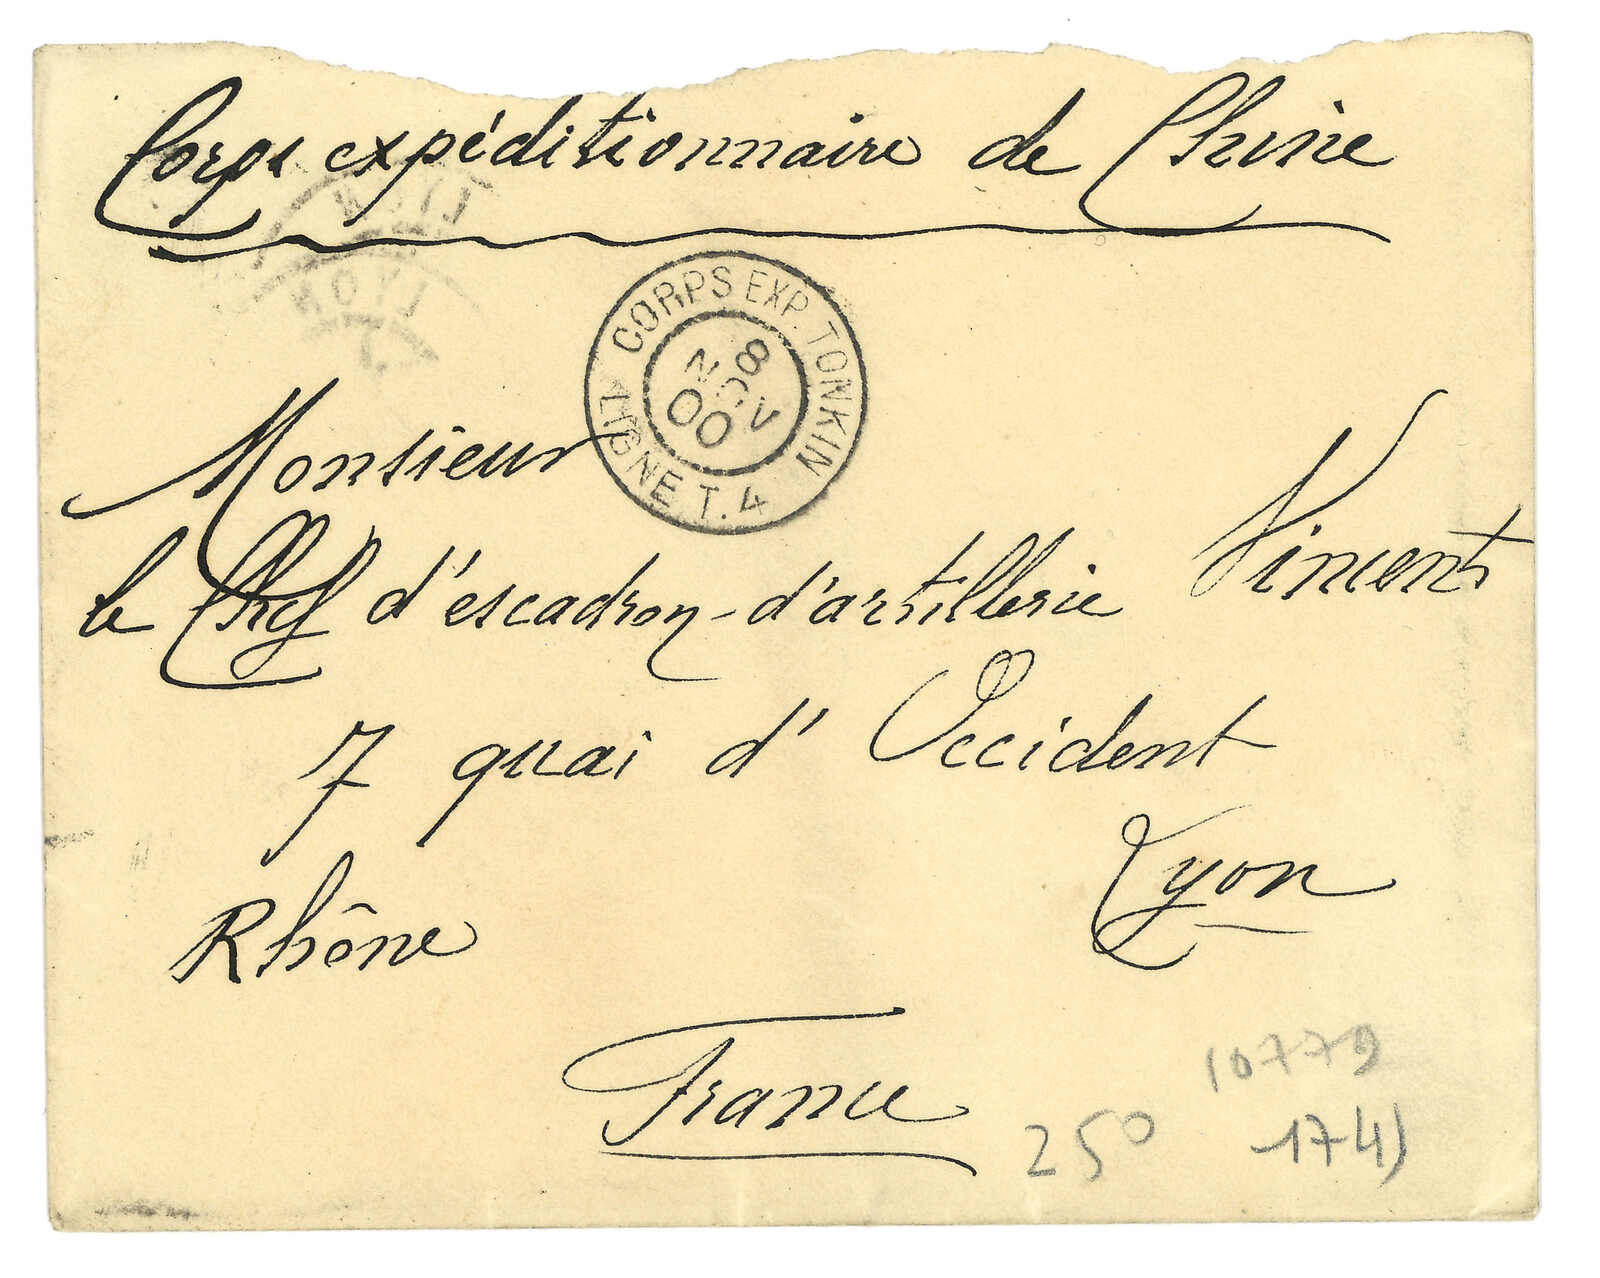 Corps expéditionnaire de Chine
LYON
LYON
CORPS EXP. TONKIN
8
NOV
00
LIGNE T. 4
Monsieur
le Chef d'escadron d'artillerie Vincent
7 quai d'Occident
Lyon
Rhône
France
10779
250